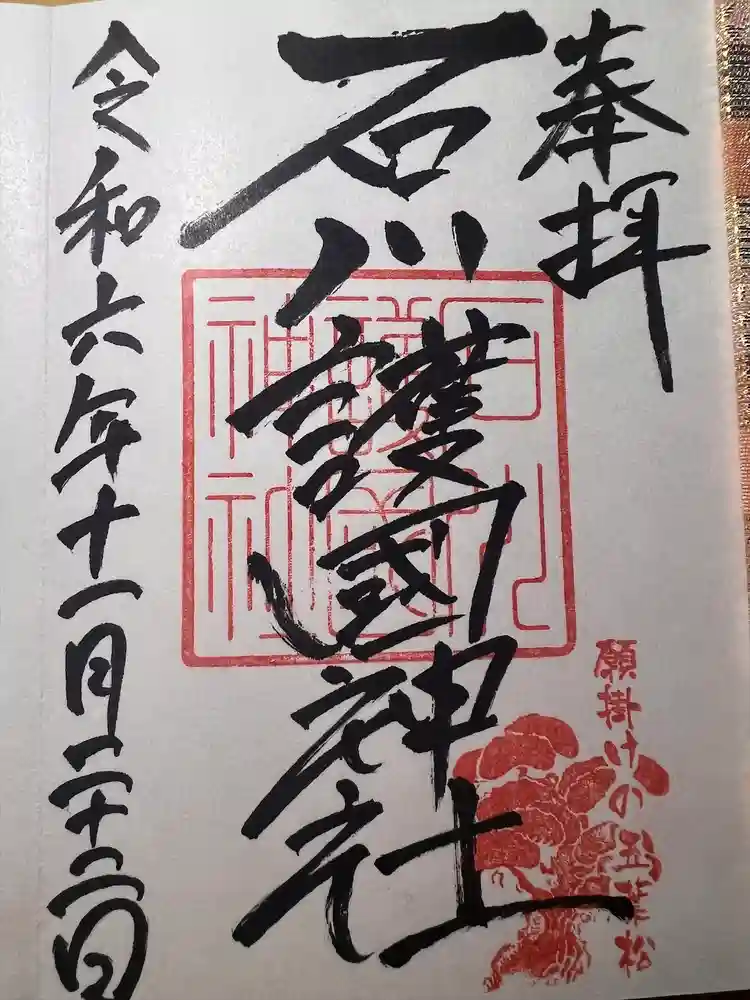 奉拝
石川護國神社
令和六年十一月二十二日
石川護國神社
願掛けの五葉松